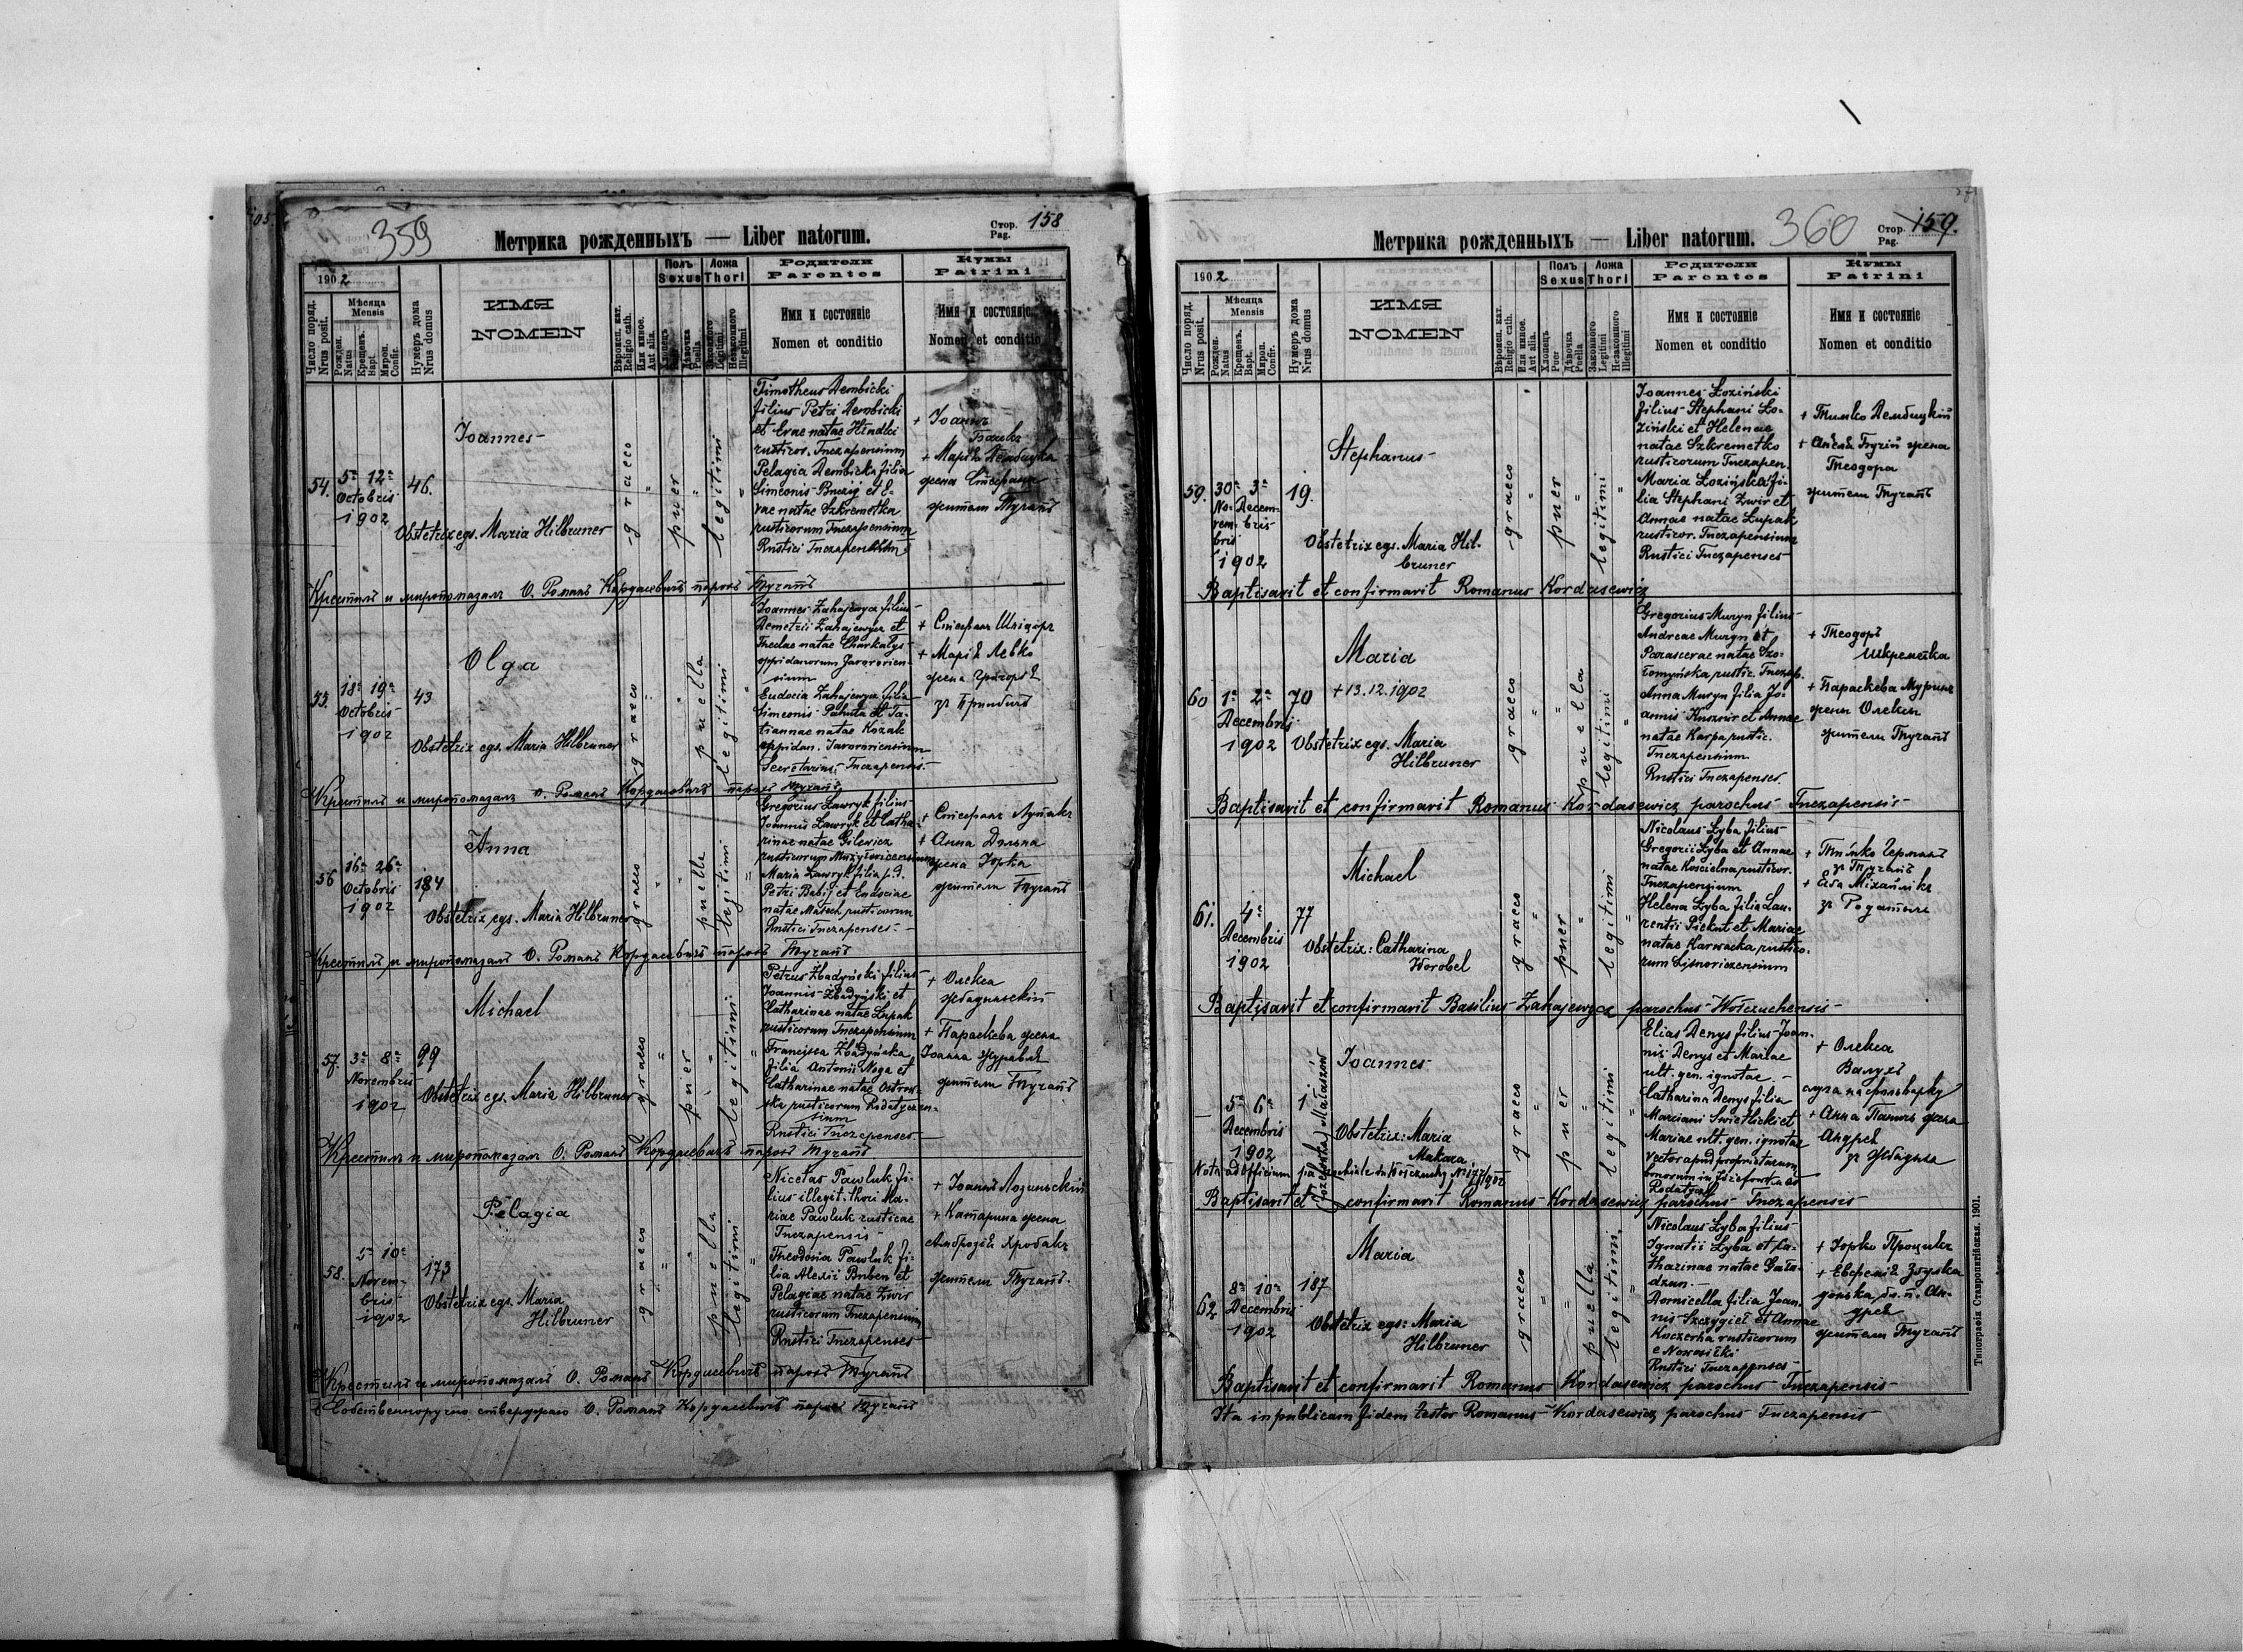 359
Метрика рожденныхъ — Liber natorum.
Стор. Pag. 158
1902
Число поряд. Nrus posit.
Мѣсяца Mensis
Рожден. Natus
Крещенъ. Bapt.
Миров. Confir.
Нумеръ дома Nrus domus
ИМЯ
NOMEN
Вѣроисп. кат. Religio cath.
Или инное. Aut alia.
Полъ Sexus
Дѣвочка Puella
Ложа Thori
Законного Legitimi
Незаконного Illegitimi
Родители
Parentes
Имя и состоянiе
Nomen et conditio
Кумы
Patrini
Имя и состоянiе
Nomen et conditio
54.
5ª 12ª
Octobris
1902
46.
Joannes
Obstetrix egs. Maria Hilbruner
graeco
puer
legitimi
Timotheus Dembicki
filius Petri Dembicki
et Evae natae Hindki
rusticor. Tuczapensium
Pelagia Dembicka filia
Simeonis Buczij et E-
vae natae Szkremetka
rusticorum Tuczapensium
Rustici Tuczapenses
+ Іоаннъ
+ Марія Дембицка
жена Стефана
жители Тучапъ
Крестилъ и миропомазалъ О. Романъ Кордасевичъ парохъ Тучапъ
55.
18ª 19ª
Octobris
1902
43
Olga
Obstetrix egs. Maria Hilbruner
graeco
puella
legitimi
Joannes Zahajewycz filius
Demetrii Zahajewycz et
Theclae natae Charkalys
oppidanorum Javorovien-
sium
Eudocia Zahajewycz filia
Simeonis Pahuta et Ta-
tiannae natae Kozak
oppidan. Javoroviensium
Secretarius Tuczapensis
+ Стефанъ
+ Марія Левко
жена Григорія
зъ
Крестилъ и миропомазалъ О. Романъ Кордасевичъ парохъ Тучапъ
56
16ª 26ª
Octobris
1902
184
Anna
Obstetrix egs. Maria Hilbruner
graeco
puella
legitimi
Gregorius Lawryk filius
Joannis Lawryk et Catha-
rinae natae Gilewicz
rusticorum Mużyłowicensium
Maria Lawryk filia p. d.
Petri Babij et Eudociae
natae Matsech rusticorum
Rustici Tuczapenses
+ Стефанъ Лупакъ
+ Анна
жена Юрка
жители Тучапъ
Крестилъ и миропомазалъ О. Романъ Кордасевичъ парохъ Тучапъ
57.
3ª 8ª
Novembris
1902
99
Michael
Obstetrix egs. Maria Hilbruner
graeco
puer
legitimi
Petrus Zbadyński filius
Joannis Zbadyński et
Catharinae natae Lupak
rusticorum Tuczapensium
Francisca Zbadyńska
filia Antonii Noga et
Catharinae natae Ostrow-
ska rusticorum Rodatyczen-
sium
Rustici Tuczapenses
+ Олекса
Жбадиньскій
+ Параскева жена
Іоанна Журавля
жители Тучапъ
Крестилъ и миропомазалъ О. Романъ Кордасевичъ парохъ Тучапъ
58.
5ª 10ª
Novem-
bris
1902
173
Pelagia
Obstetrix egs. Maria
Hilbruner
graeco
puella
legitimi
Nicetas Pawluk fi-
lius illegit. thori Ma-
riae Pawluk rusticae
Tuczapensis
Theodosia Pawluk fi-
lia Alexii Buben et
Pelagiae natae Zwir
rusticorum Tuczapensium
Rustici Tuczapenses
+ Іоаннъ Лозиньскій
+ Катарина жена
Амброзія Хробакъ
жители Тучапъ.
Крестилъ и миропомазалъ О. Романъ Кордасевичъ парохъ Тучапъ
Собственноручно стверджаю О. Романъ Кордасевичъ парохъ Тучапъ
Метрика рожденныхъ — Liber natorum.
360
Стор. Pag. 159.
1902
Число поряд. Nrus posit.
Мѣсяца Mensis
Рожден. Natus
Крещенъ. Bapt.
Миров. Confir.
Нумеръ дома Nrus domus
ИМЯ
NOMEN
Вѣроисп. кат. Religio cath.
Или инное. Aut alia.
Полъ Sexus
Хлопецъ Puer
Дѣвочка Puella
Ложа Thori
Законного Legitimi
Незаконного Illegitimi
Родители
Parentes
Имя и состоянiе
Nomen et conditio
Кумы
Patrini
Имя и состоянiе
Nomen et conditio
59.
30ª 3ª
No- Decem-
vem- bris
bris
1902
19.
Stephanus
Obstetrix egs. Maria Hil-
bruner
graeco
puer
legitimi
Joannes Łoziński
filius Stephani Ło-
ziński et Helenae
natae Szkremetko
rusticorum Tuczapen.
Maria Łozińska fi-
lia Stephani Zwir et
Annae natae Lupak
rusticor. Tuczapensium
Rustici Tuczapenses
+ Тимко Дембицкій
жена
Теодора
жители Тучапъ
Baptisavit et confirmavit Romanus Kordasewicz
60
1ª 2ª
Decembris
1902
70
Maria
+ 13.12.1902
Obstetrix egs. Maria
Hilbruner
graeco
puella
legitimi
Gregorius Muryn filius
Andreae Muryn et
Parascevae natae Szo-
łomyńska rustic. Tuczap.
Anna Muryn filia Jo-
annis Kusznir et Annae
natae Karpa rustic.
Tuczapensium
Rustici Tuczapenses
+ Теодоръ
Шкреметка
+ Параскева Муринъ
жена Олексы
жители Тучапъ
Baptisavit et confirmavit Romanus Kordasewicz parochus Tuczapensis
61.
4ª
Decembris
1902
77
Michael
Obstetrix: Catharina
Worobel
graeco
puer
legitimi
Nicolaus Zyba filius
Gregorii Zyba et Annae
natae Kościelna rusticor.
Tuczapensium
Helena Zyba filia Lau-
rentii Piekut et Mariae
natae Karwacka rustico-
rum
зъ Тучапъ
зъ Родатичъ
Baptisavit et confirmavit Basilius Zahajewycz parochus Wołczuchensis
5ª 6ª
Decembris
1902
1
Joannes
Obstetrix: Maria
Makara
graeco
puer
legitimi
Elias Denys filius Joan-
nis Denys et Mariae
ult. gen. ignotae.
Catharina Denys filia
Marciani Swietlicki et
Mariae ult. gen. ignotae
Vector apud proprietarium
bonorum in Józefówka ad
Rodatycze
+ Олекса
Валухъ
слуга на фольварку
+ Анна жена
Андрея
Baptisavit et confirmavit Romanus Kordasewicz parochus Tuczapensis
62
8ª 10ª
Decembris
1902
187
Maria
Obstetrix egs: Maria
Hilbruner
graeco
puella
legitimi
Nicolaus Zyba filius
Ignatii Zyba et Ca-
tharinae natae Gała-
dzun.
Dornicella filia Joan-
nis Szczygieł et Annae
Kuczerka rusticorum
e Nowosiłki
Rustici Tuczapenses
+ Юрко Процикъ
жители Тучапъ
Baptisavit et confirmavit Romanus Kordasewicz parochus Tuczapensis
Ita in publicam fidem testor Romanus Kordasewicz parochus Tuczapensis
Типографія Ставропигійская. 1901.